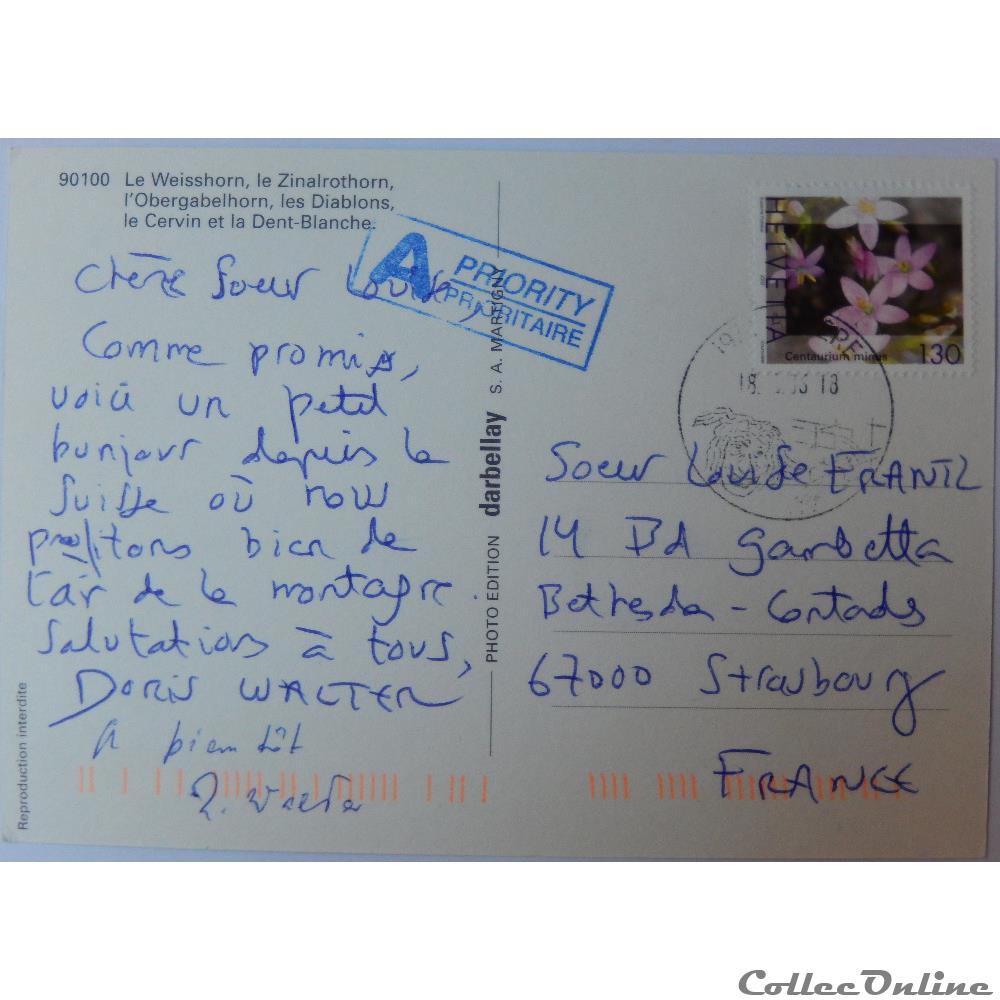 90100 Le Weisshorn, le Zinalrothorn,
l'Obergabelhorn, les Diablons,
le Cervin et la Dent-Blanche.
Chère Soeur Louise,
Comme promis,
voici un petit
bonjour depuis la
Suisse où nous
profitons bien de
l'air de la montagne.
Salutations à tous,
Doris WALTER
A bientôt
A PRIORITY
PRIORITAIRE
PHOTO EDITION darbellay S. A. MARTIGNY
Reproduction interdite
HELVETIA
Centaurium minus
130
18
Soeur Louise FRANTZ
14 Bd Gambetta
Bethesda - Contades
67000 Strasbourg
FRANCE
CollecOnline